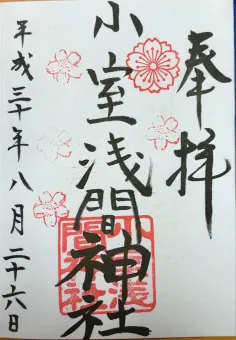 奉拝
小室浅間神社
平成三十年八月二十六日
小室浅間神社